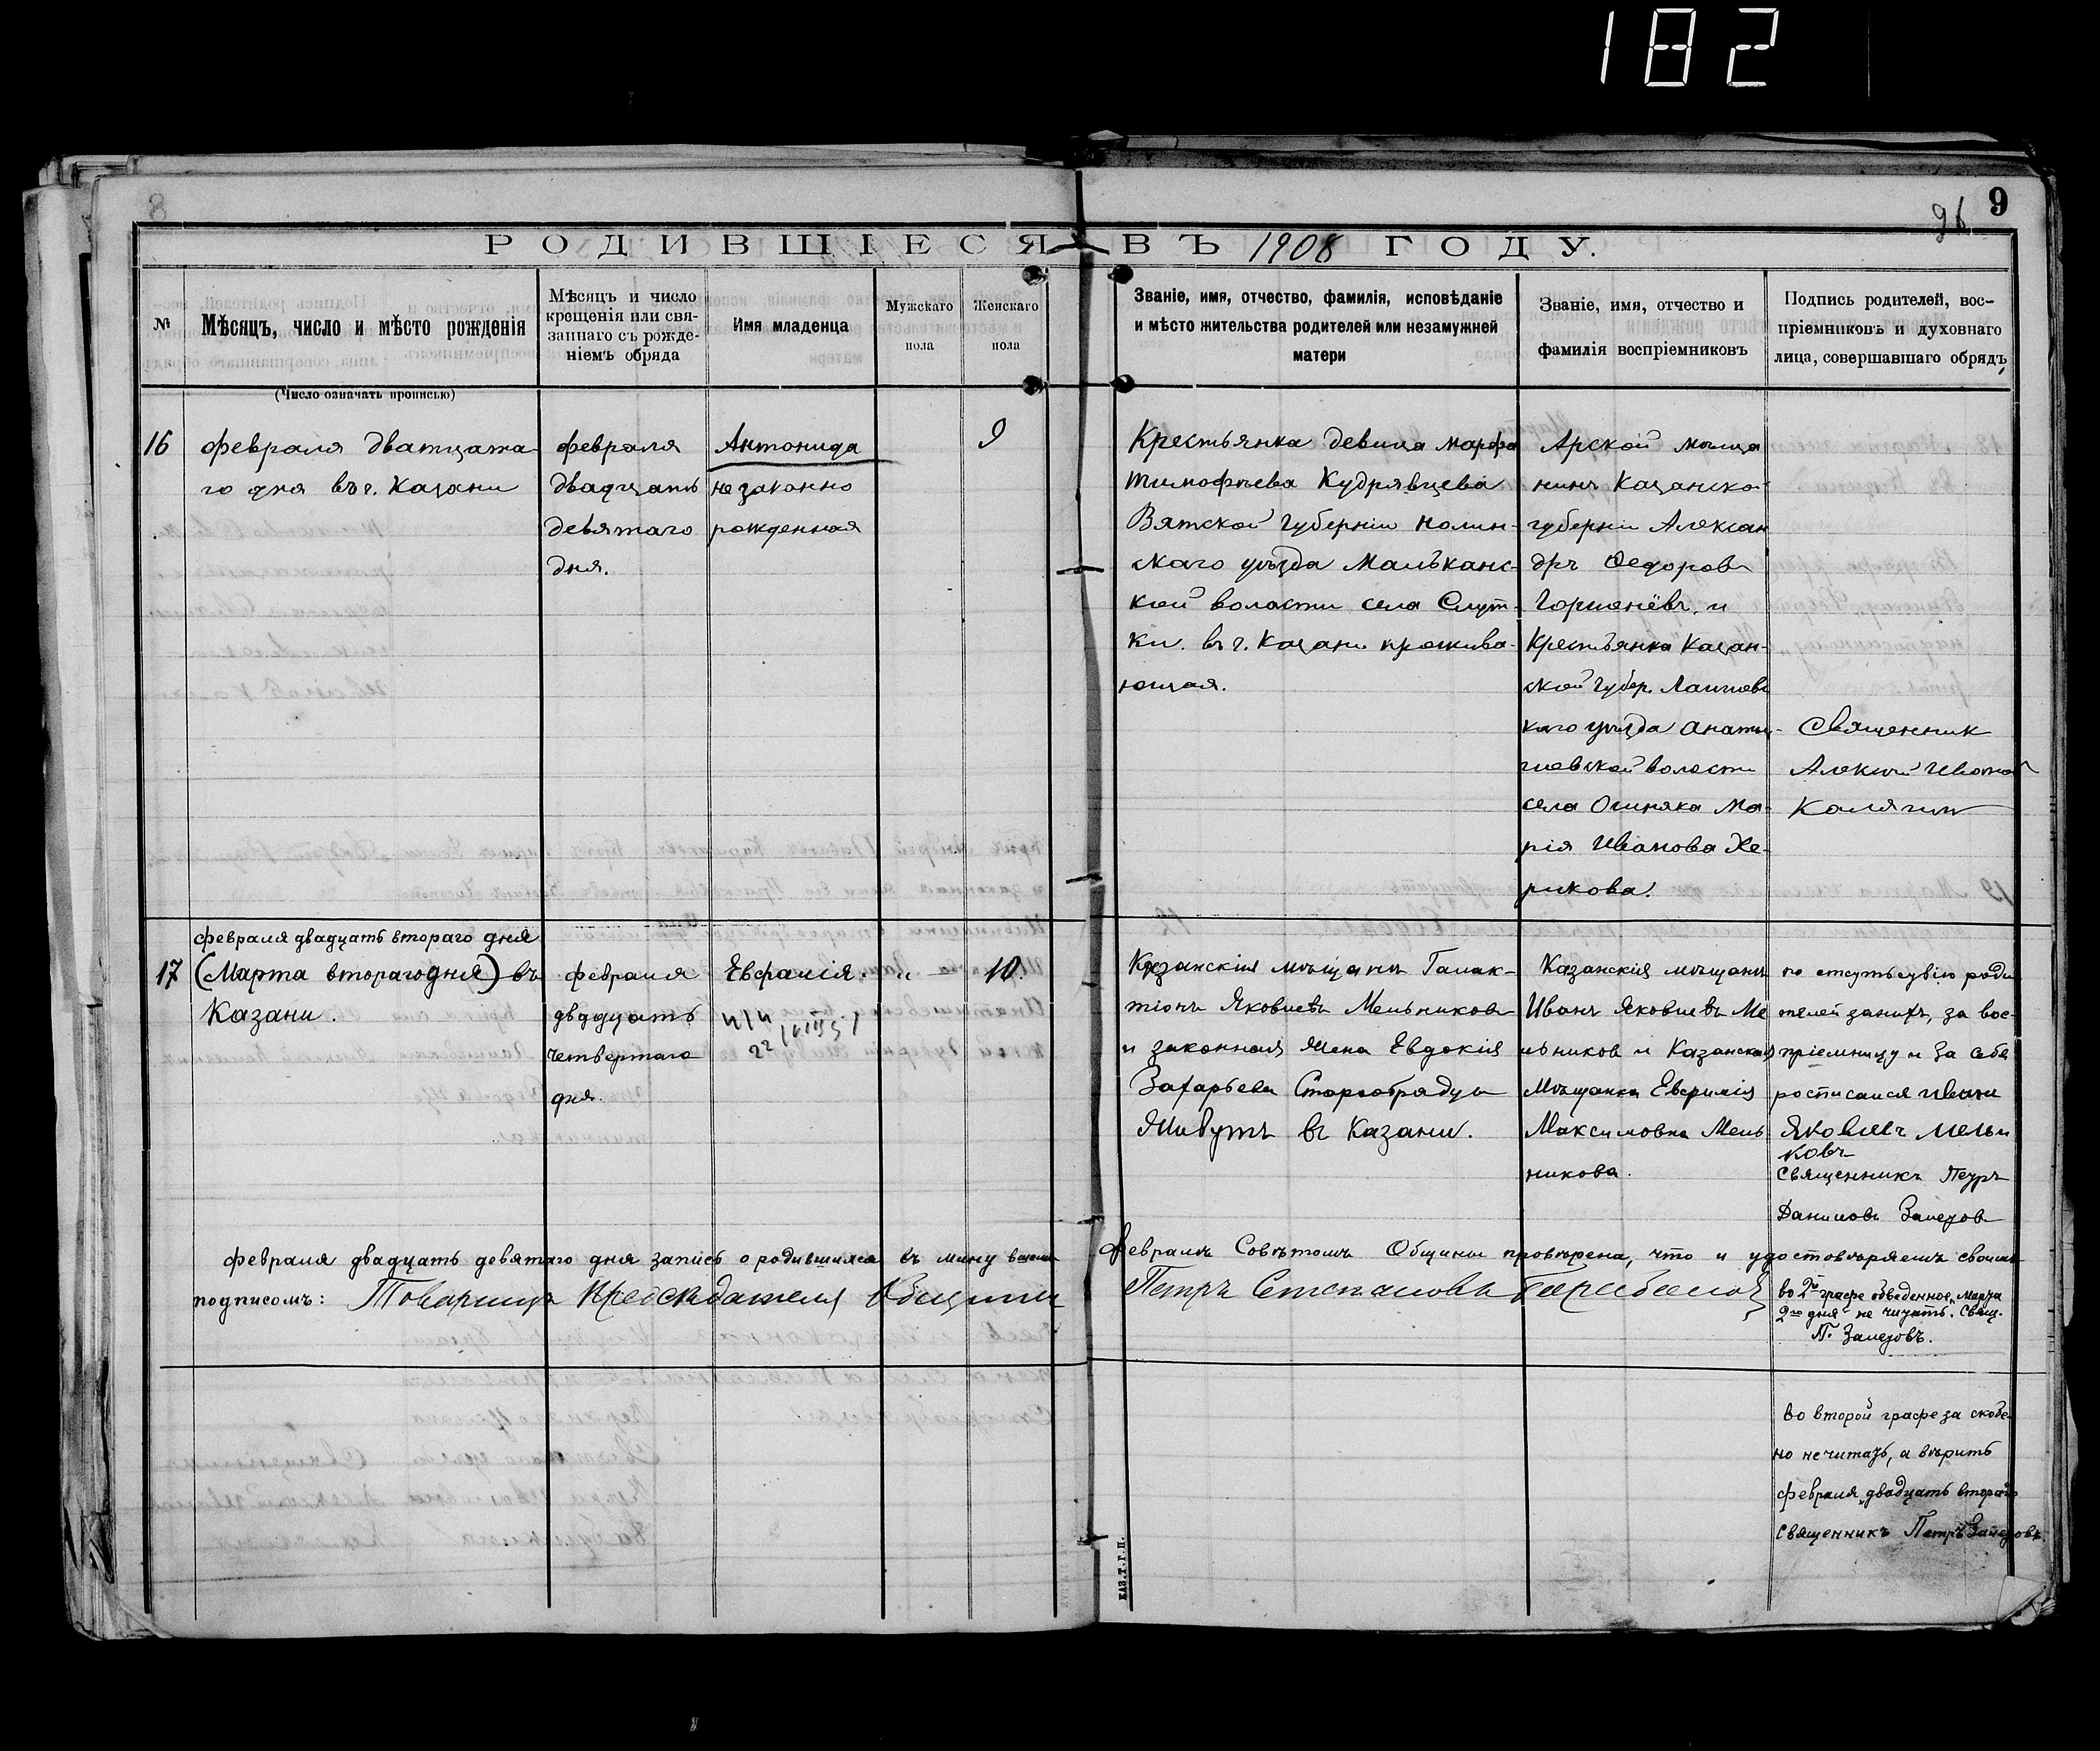 182
8
9
96
РОДИВШІЕСЯ ВЪ 1908 ГОДУ.
№
Мѣсяцъ, число и мѣсто рожденія
Мѣсяцъ и число
крещенія или свя-
заннаго съ рожде-
ніемъ обряда
Имя младенца
Мужскаго
пола
Женскаго
пола
Званіе, имя, отчество, фамилія, исповѣданіе
и мѣсто жительства родителей или незамужней
матери
Званіе, имя, отчество и
фамилія воспріемниковъ
Подпись родителей, вос-
пріемниковъ и духовнаго
лица, совершавшаго обрядъ
(Число означать прописью)
16
февраля дватцата
го дня въ г. Казани
февраля
двадцать
девятаго
дня.
Антонида
незаконно
рожденная
9
Крестьянка девица Марфа
Тимофѣева Кудрявцева
Вятской губерніи Нолин-
скаго уѣзда
кой воласти села
ки. въ г. Казани прожива-
ющая.
Арской мѣща
нинъ Казанской
губерніи Алексан
дръ Ѳедоровъ
и
Крестьянка Казан-
ской Губер. Лаишев
каго уѣзда
воласти
села Ма-
рія Иванова Хе-
рикова.
Священник
Алексѣй
Калягин
17
февраля двадцать втораго дня
(Марта втораго дня) въ
Казани.
февраля
двадцать
четвертаго
дня.
Евфалія.
„ —
10.
Казанскія мѣщанъ Галак-
тіонъ Яковлевъ Мельников
и законная жена Евдокія
Захарьева Старообрядцы
Живутъ въ Казани.
Казанскія мѣщанъ
Иванъ Яковлевъ Ме
льников и Казанская
Мѣщанка
Максимовна Мель
никова.
по отсутьсувію роди
телей занихъ, за вос-
пріемницу и за себя
росписался Иванъ
Яковлевъ Мельни
ковъ
Священникъ Петръ
Даниловъ Залетов
февраля двадцать девятаго дня запись о родившихся въ февралѣ Совѣтомъ Общины провѣрена, что и удостовѣряемъ своимъ
подписомъ: Товарищъ Председателя Общины Петръ Степановъ
во 2й графе обведенное „Марта
2го дня“ не читать. Свящ.
П. Залетовъ.
Во второй графе за скобе-
но не читать, а вѣрить
февраля „двадцать втораго
Священникъ Петръ Залетовъ
КАЗ.Т.Г.П.